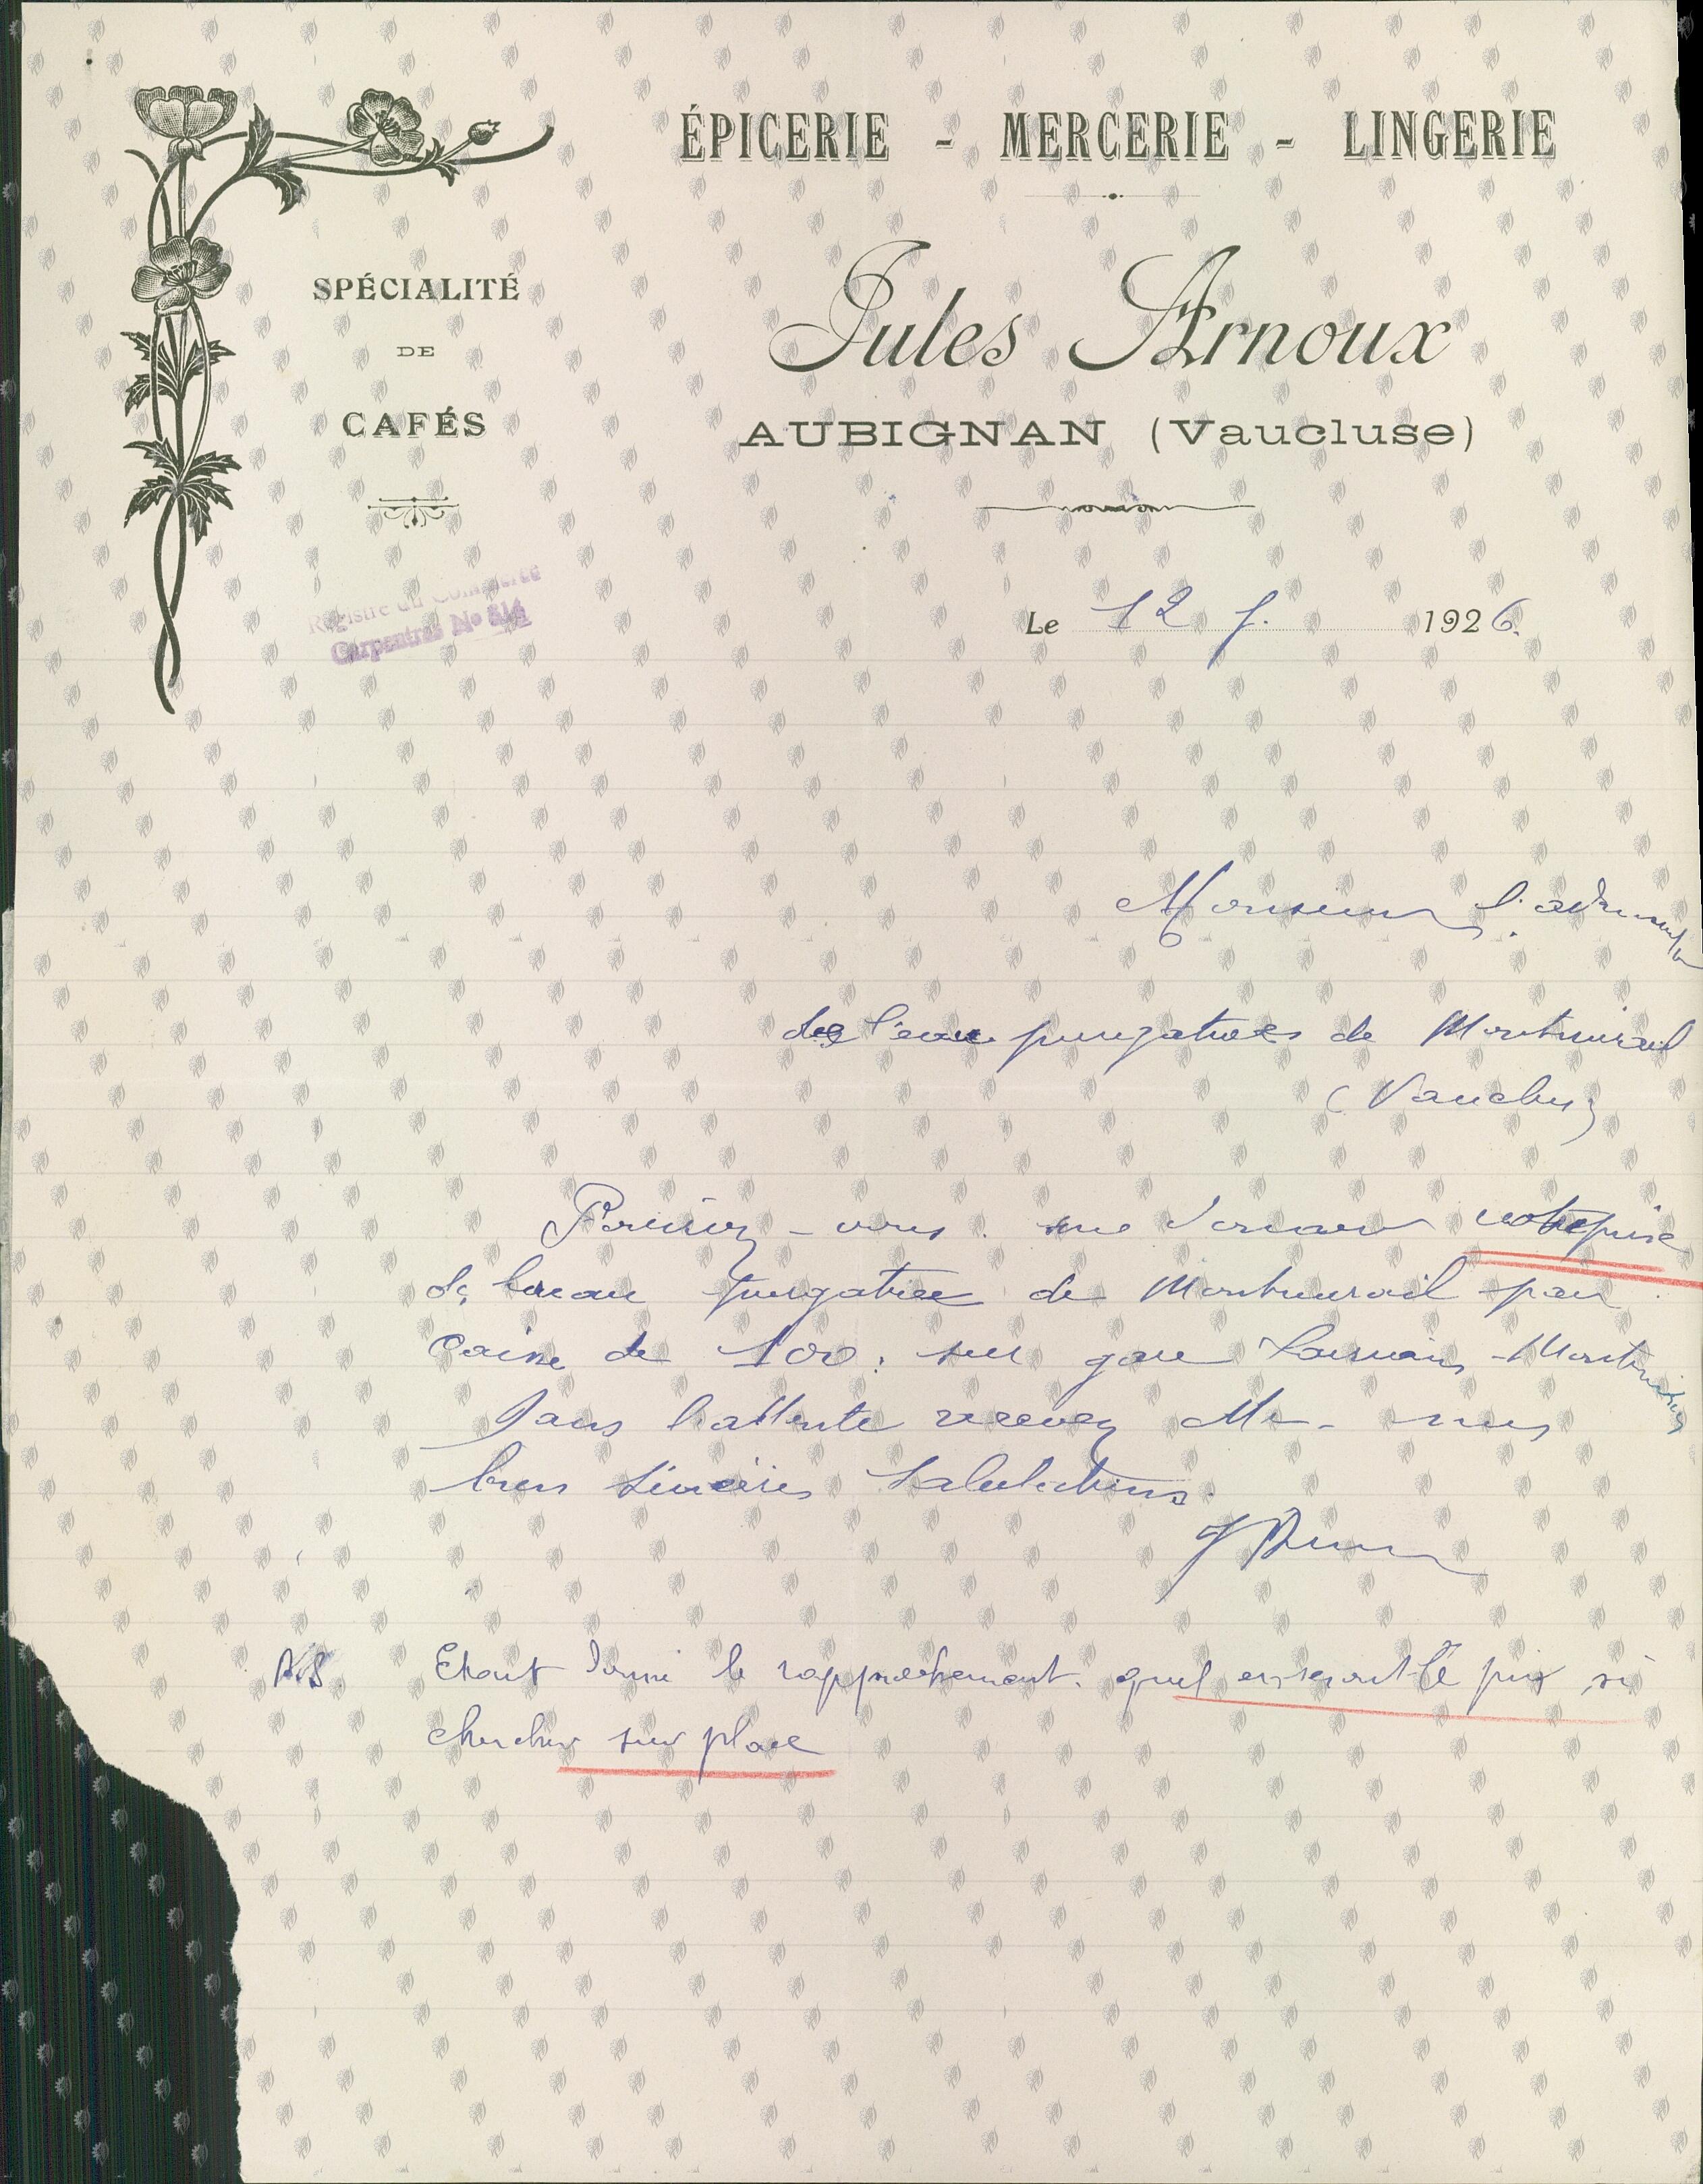 ÉPICERIE - MERCERIE - LINGERIE
SPÉCIALITÉ
DE
CAFÉS
Jules Arnoux
AUBIGNAN (Vaucluse)
Registre du Commerce
Carpentras No 514
Le 12 f. 1926.
Monsieur l'
de l'eau purgatives de Montmirail
(Vaucluse)
Pouriez-vous me donner votre prix
de l'eau purgative de Montmirail par
caisse de 100. sur gare Sarrians-Montmirail
Dans l'attente recevez Mr mes
bien sincères salutations.
J Arnoux
N.B. Etant donné le rapprochement. quel en serait le prix si
chercher sur place